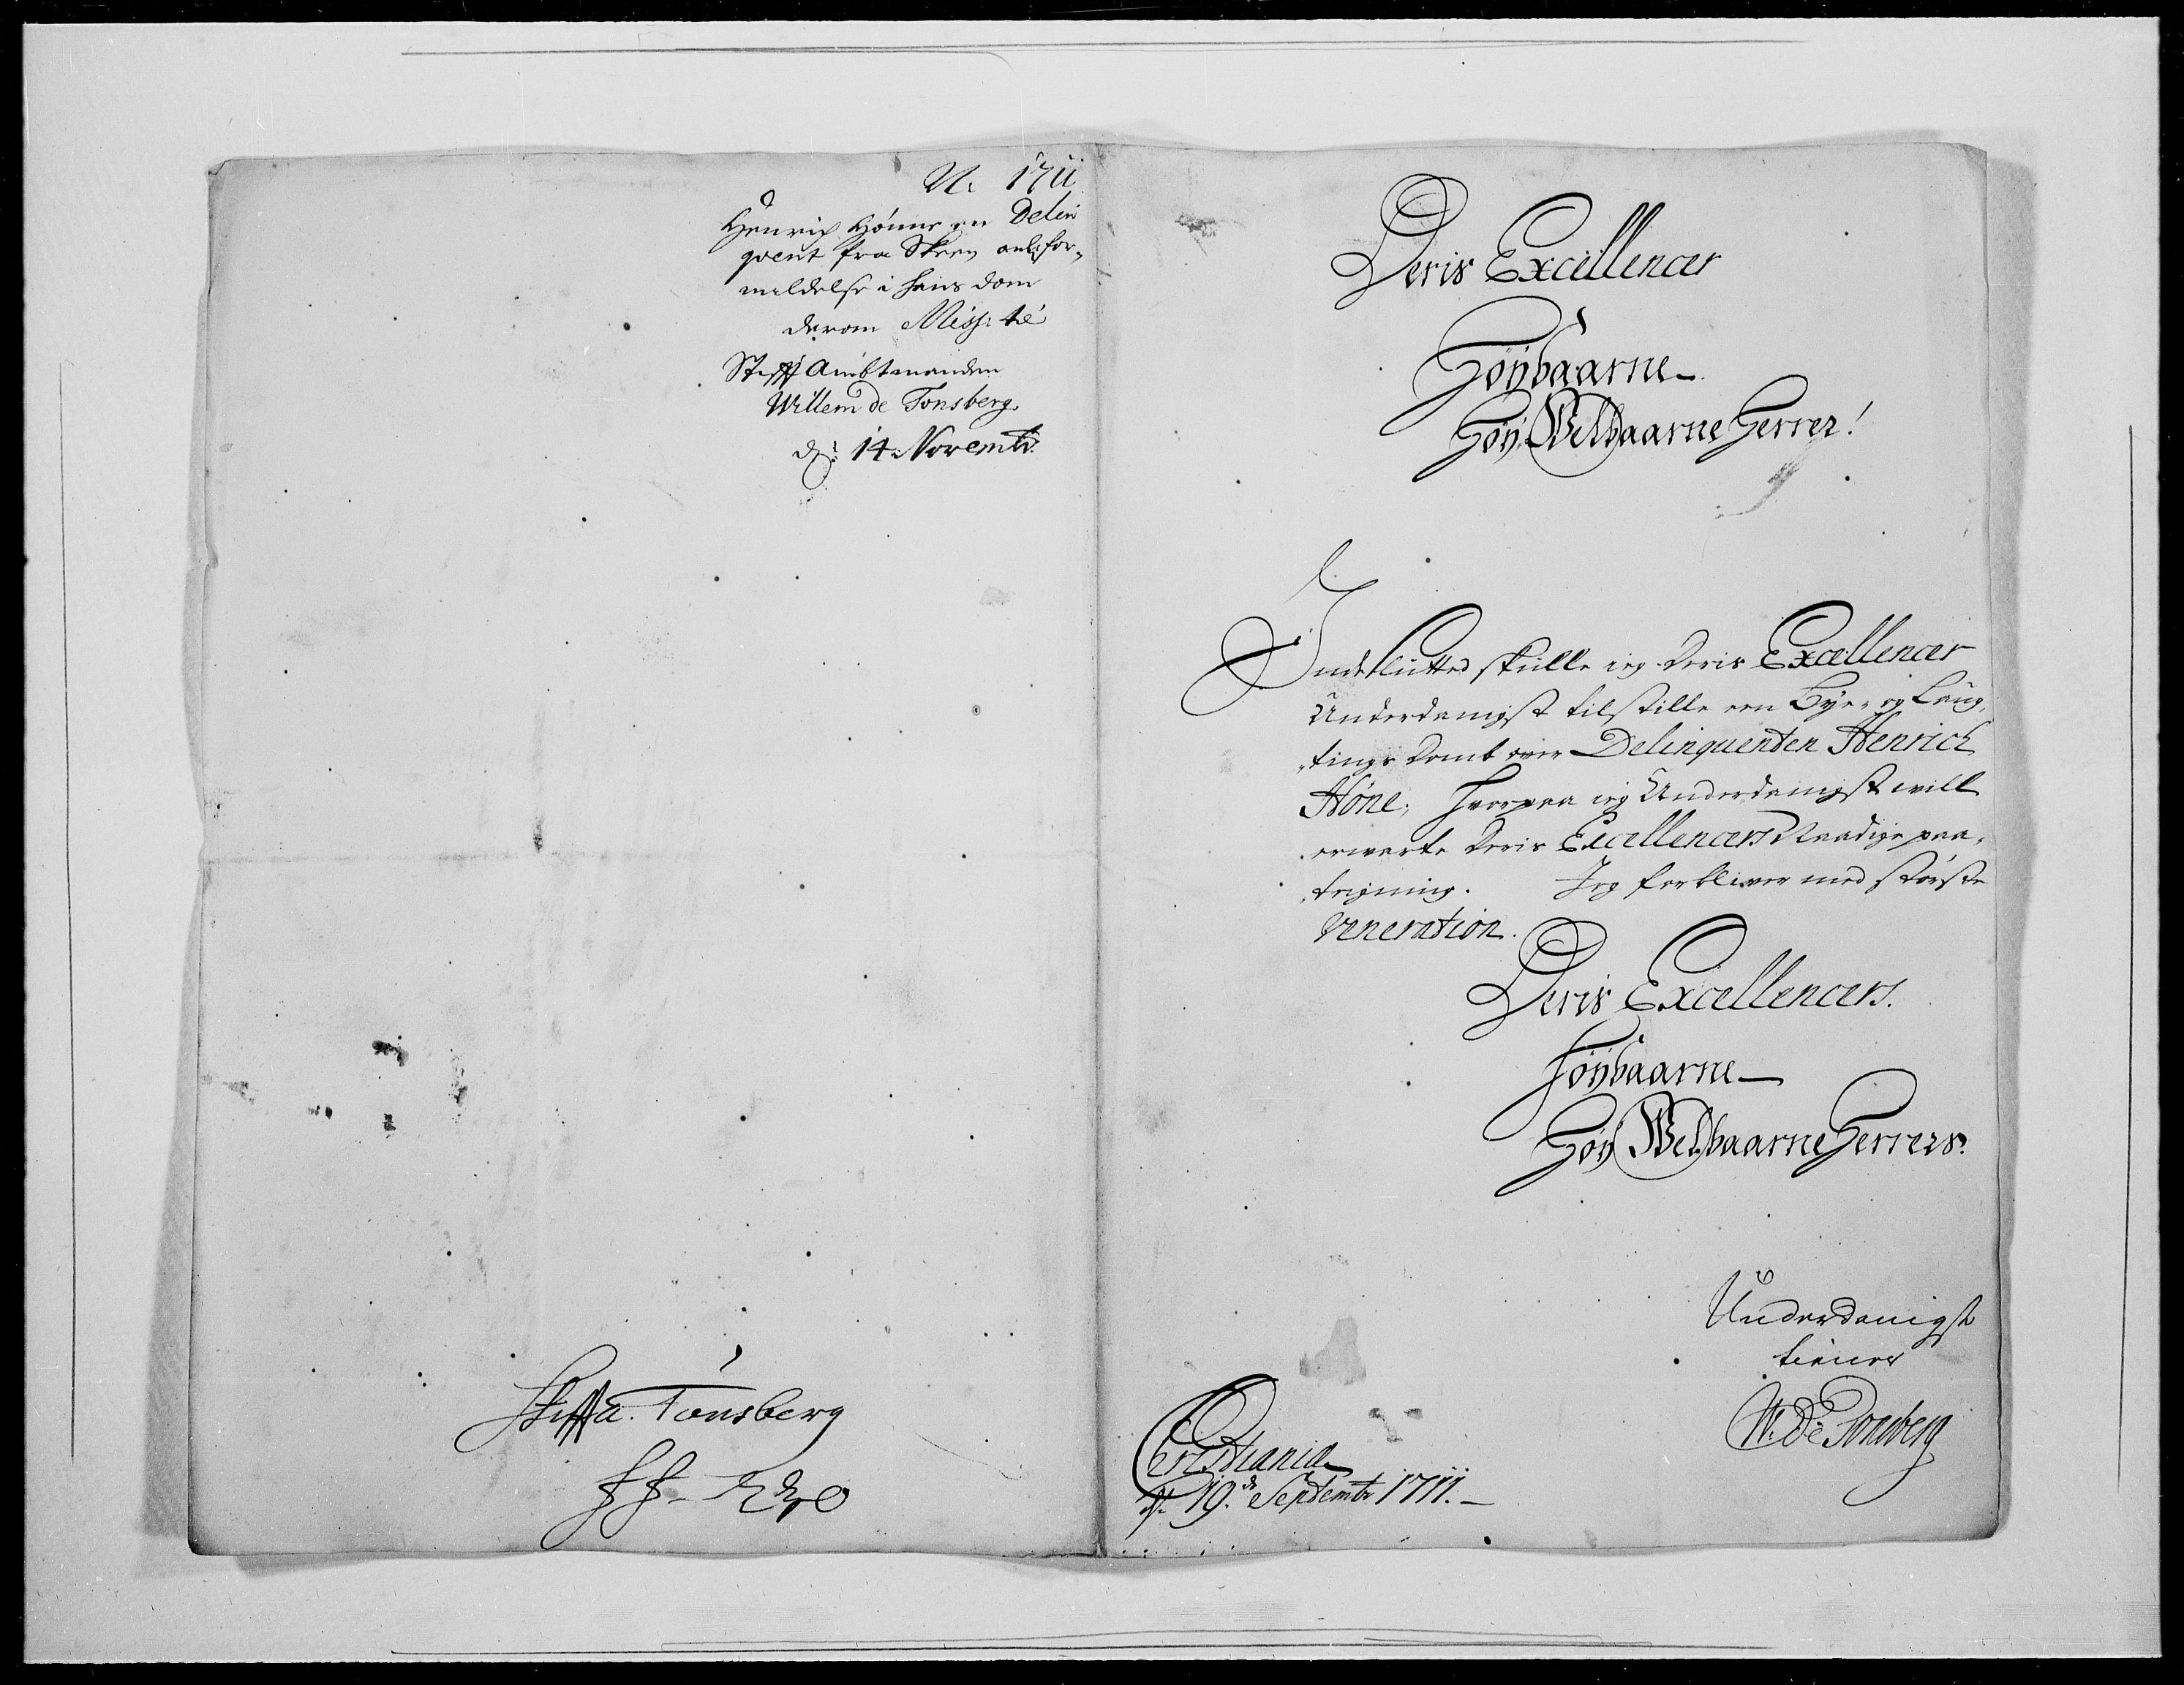 N: 1711
Henrich Hönne en Delin
qvent fra Skeen anl: for¬
mildelse i hans dom
derom Miss: til
Stifft Ambtmanden
Willem de Tonsberg.
dj: 14 Novembr:
Stiffta. Tonsberg
Deris Excellencer
Höybaarne
Höy Welbaarne Herrer!
Indslutted skulle jeg Deris Excellencer
Underdanigst tilstille een Bye- og Laug¬
tings Domb over Delinquenten Henrich
Höne, hvorpaa jeg Underdanigst will
erwarte Deris Excellencers Naadige paa¬
tegning. Jeg forbliver med störste
Veneration.
Deris Excellencers.
Höybaarne
Höy Welbaarne Herrers.
Underdanigst
tienner
W. De Tonsberg
Christiania
dj. 19. de Septembr 1711.